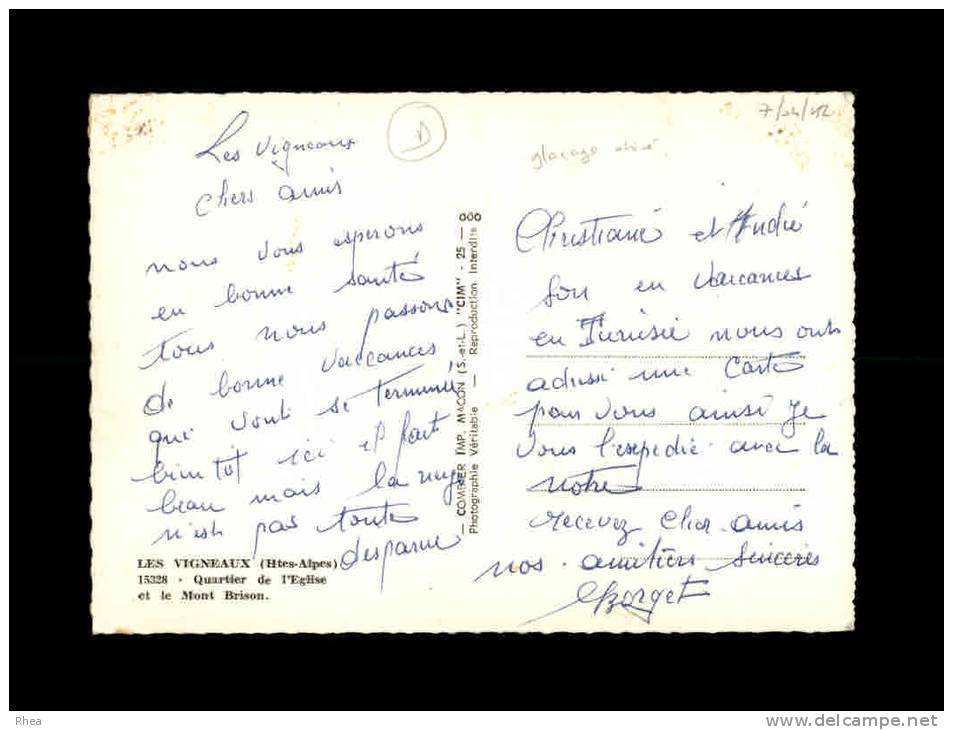 Les Vigneaux
Chers amis
nous vous esperons
en bonne santé
tous nous passons
de bonne vaccances
qui vont se terminé
bientot ici il fait
beau mais la neige
n'est pas toute
desparue
D
LES VIGNEAUX (Htes-Alpes)
15328 - Quartier de l'Eglise
et le Mont Brison.
— COMBIER IMP. MACON (S.-et-L.) "CIM" - 25 —
Photographie Véritable — Reproduction Interdite
glaçage abimé
Christiane et André
son en vaccances
en Tunisie nous onts
adussi une carte
pour vous ainsi je
vous l'expedie avec la
notre
recevez cher amis
nos amitiers sinceres
Rhea
www.delcampe.net